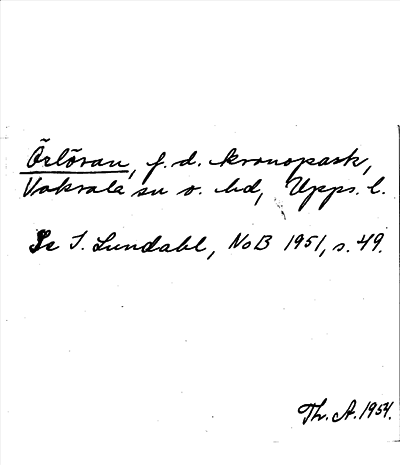 Örlöran, f.d. kronopark,
Vaksala sn o. hd, Upps. l.
Se I. Lundahl, NoB 1951, s. 49.
Th. A. 1954.